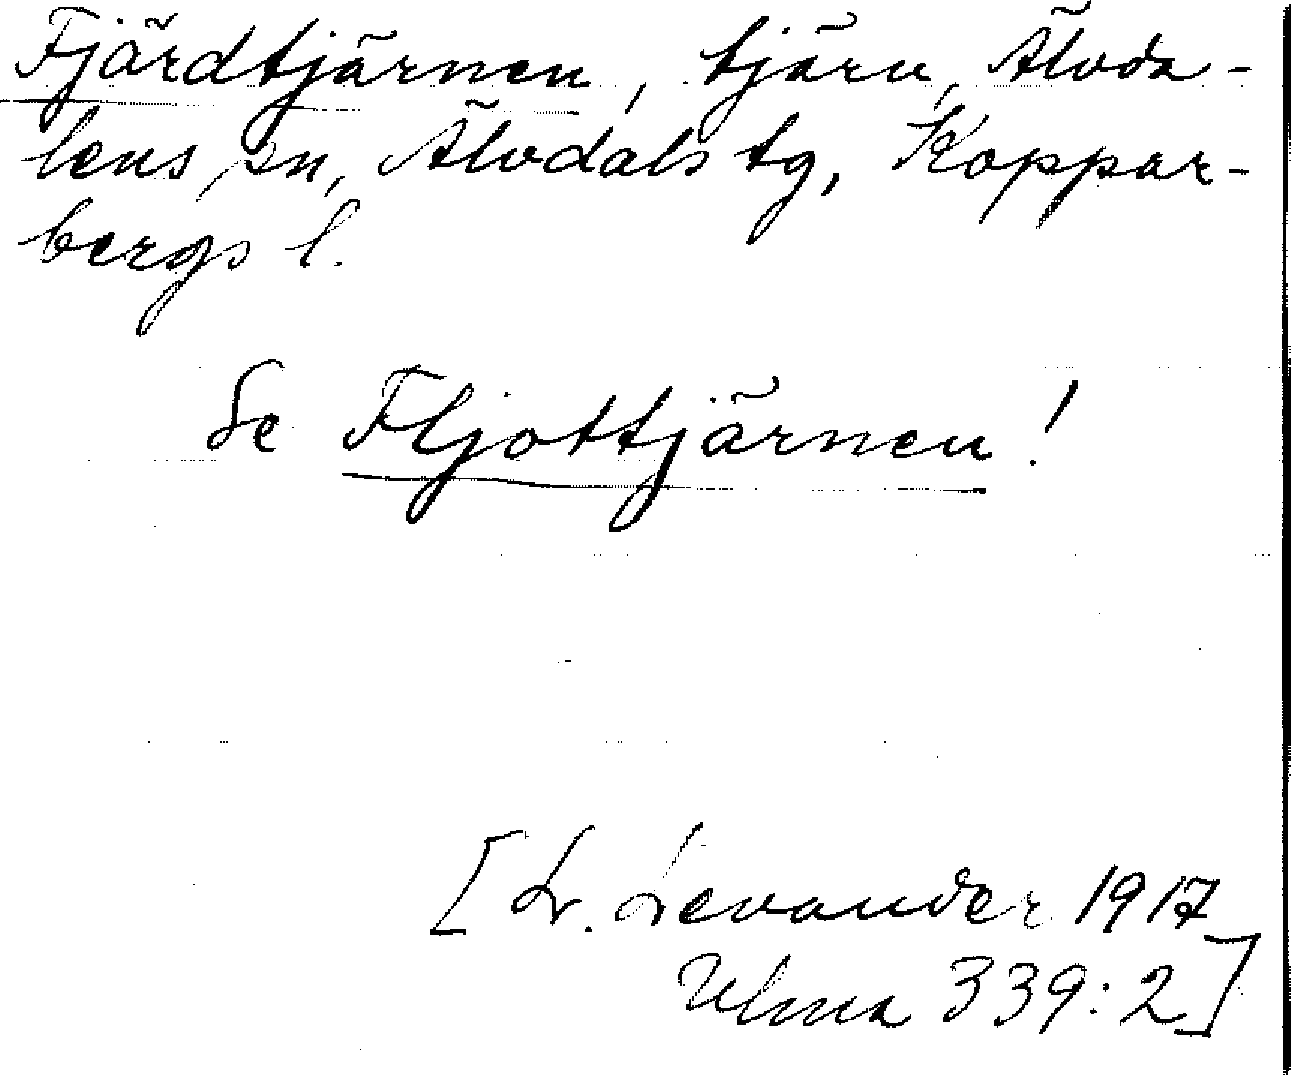 Fjärdtjärnen, tjärn, Älvda-
lens sn, Älvdals tg, Koppar-
bergs l.
Se Fljottjärnen!
[L. Levander 1917
Ulma 339:2]